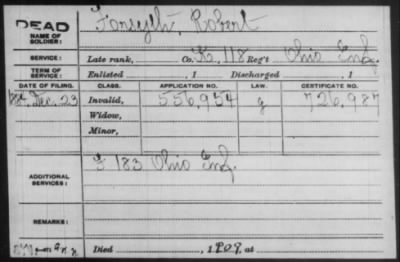 DEAD Forsyth, Robert
NAME OF SOLDIER:
SERVICE: Late rank, Co. K, 118 Reg't Ohio Inf.
TERM OF SERVICE: Enlisted , 1 Discharged , 1
DATE OF FILING. CLASS. APPLICATION NO. LAW. CERTIFICATE NO.
Dec. 23 Invalid, 556,954 g 726,987
Widow,
Minor,
ADDITIONAL SERVICES: F 183 Ohio Inf.
REMARKS:
Died , 1909, at